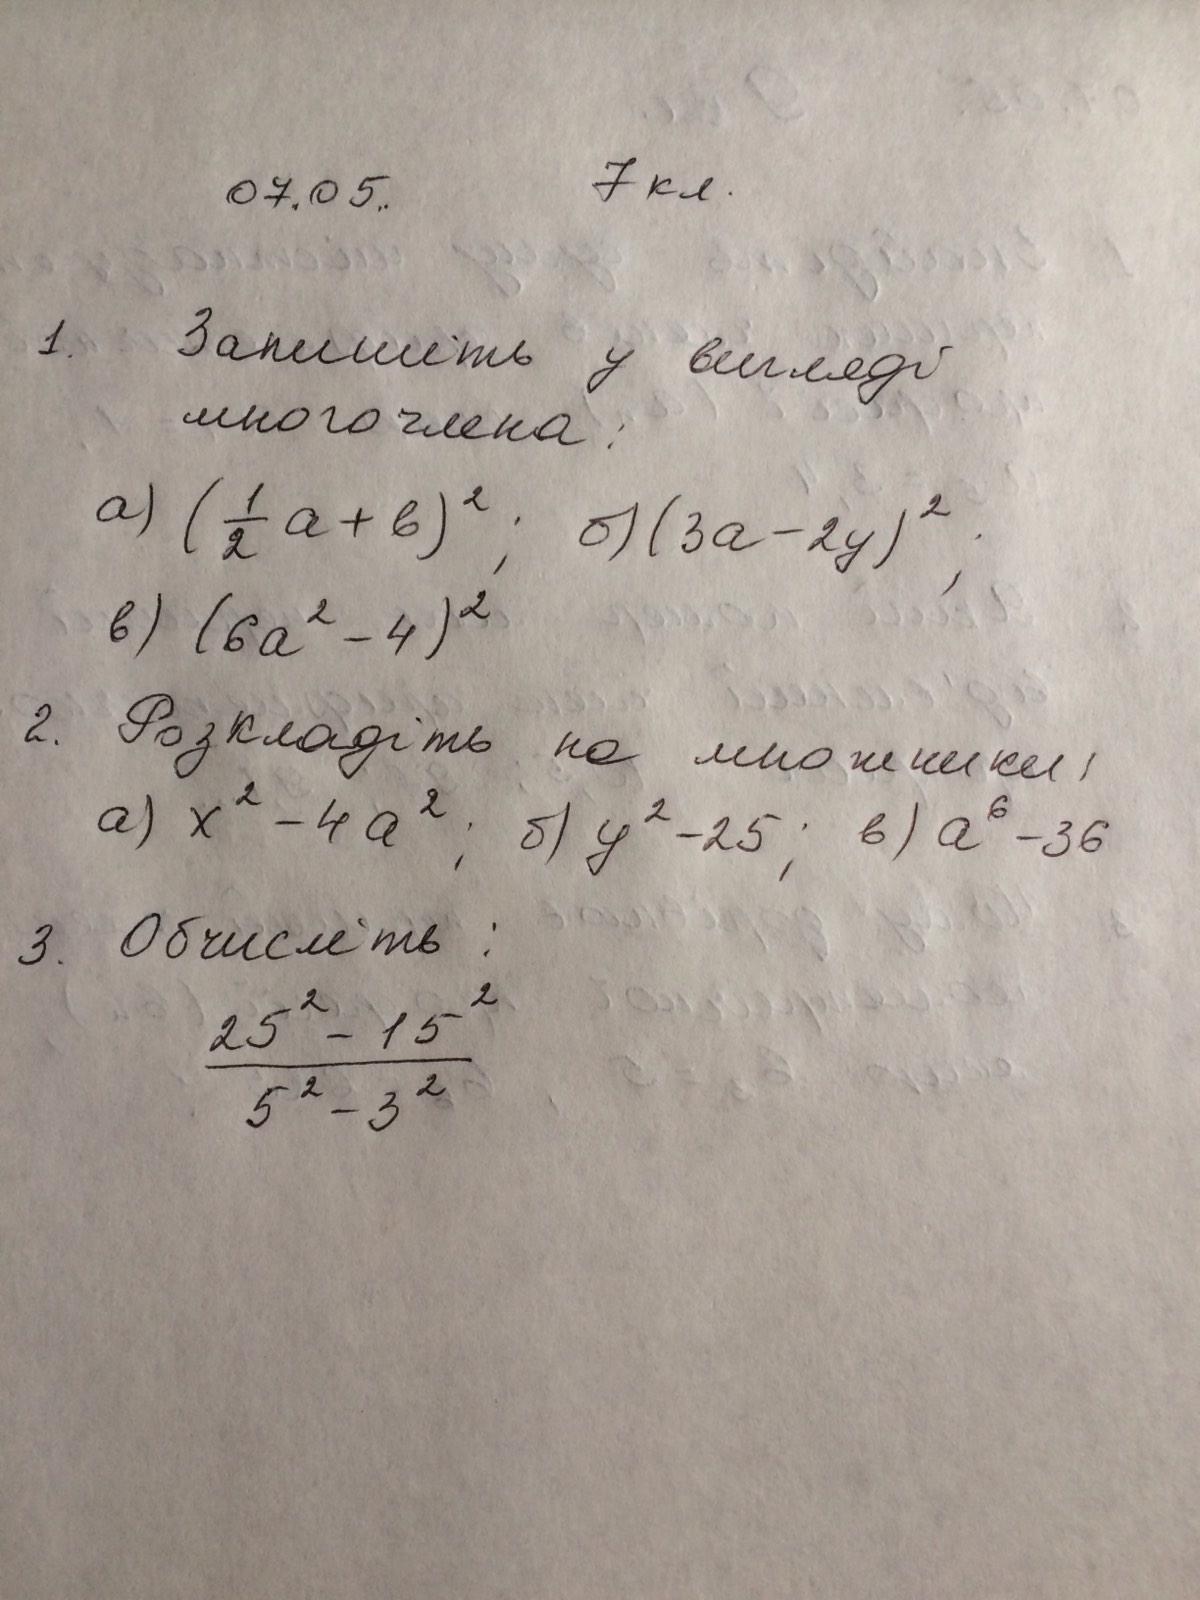 07.05. 7 кл.
1. Запишіть у вигляді
многочлена:
а) (1/2 a + b)²; б) (3a - 2y)²;
в) (6a² - 4)²
2. Розкладіть на множники:
а) x² - 4a²; б) y² - 25; в) a⁶ - 36
3. Обчисліть:
25² - 15²
5² - 3²